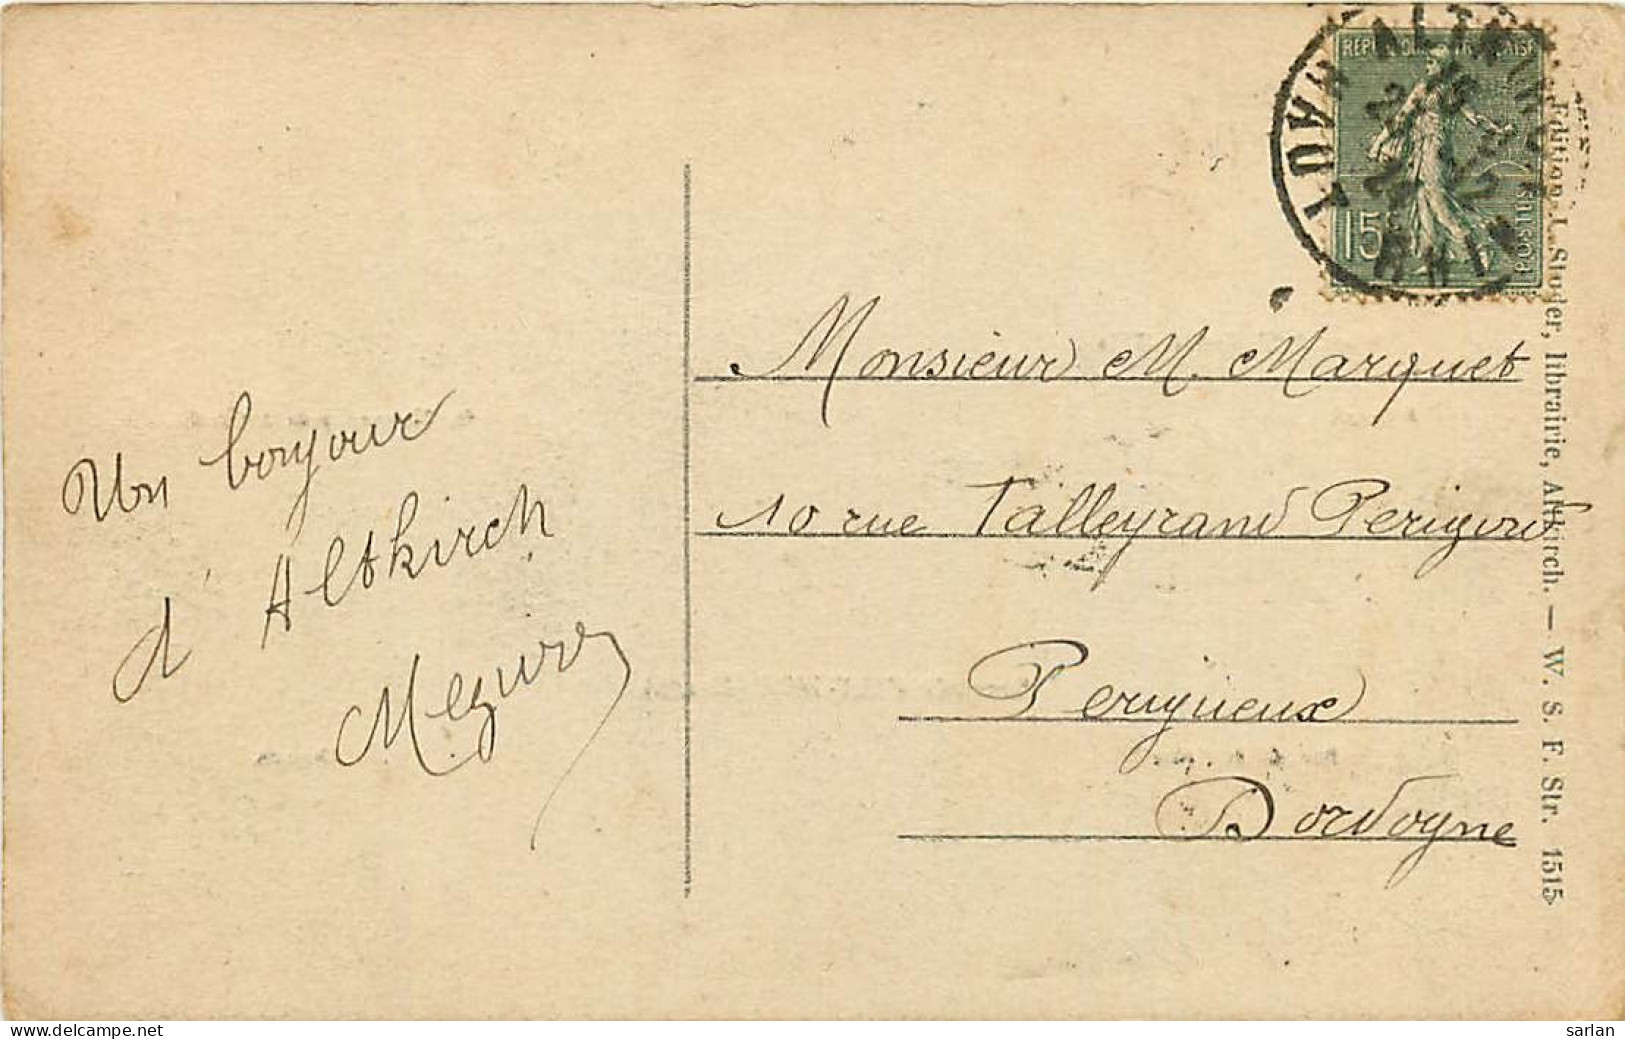 Un bonjour
d'Altkirch
Monsieur M. Marquet
10 rue Talleyrand Perigord
Perigueux
Dordogne
REPUBLIQUE FRANÇAISE
15c
POSTES
ALTKIRCH
HAUT RHIN
Edition J. Studer, librairie, Altkirch. — W. S. F. Str. 1515
delcampe.net
sarlan